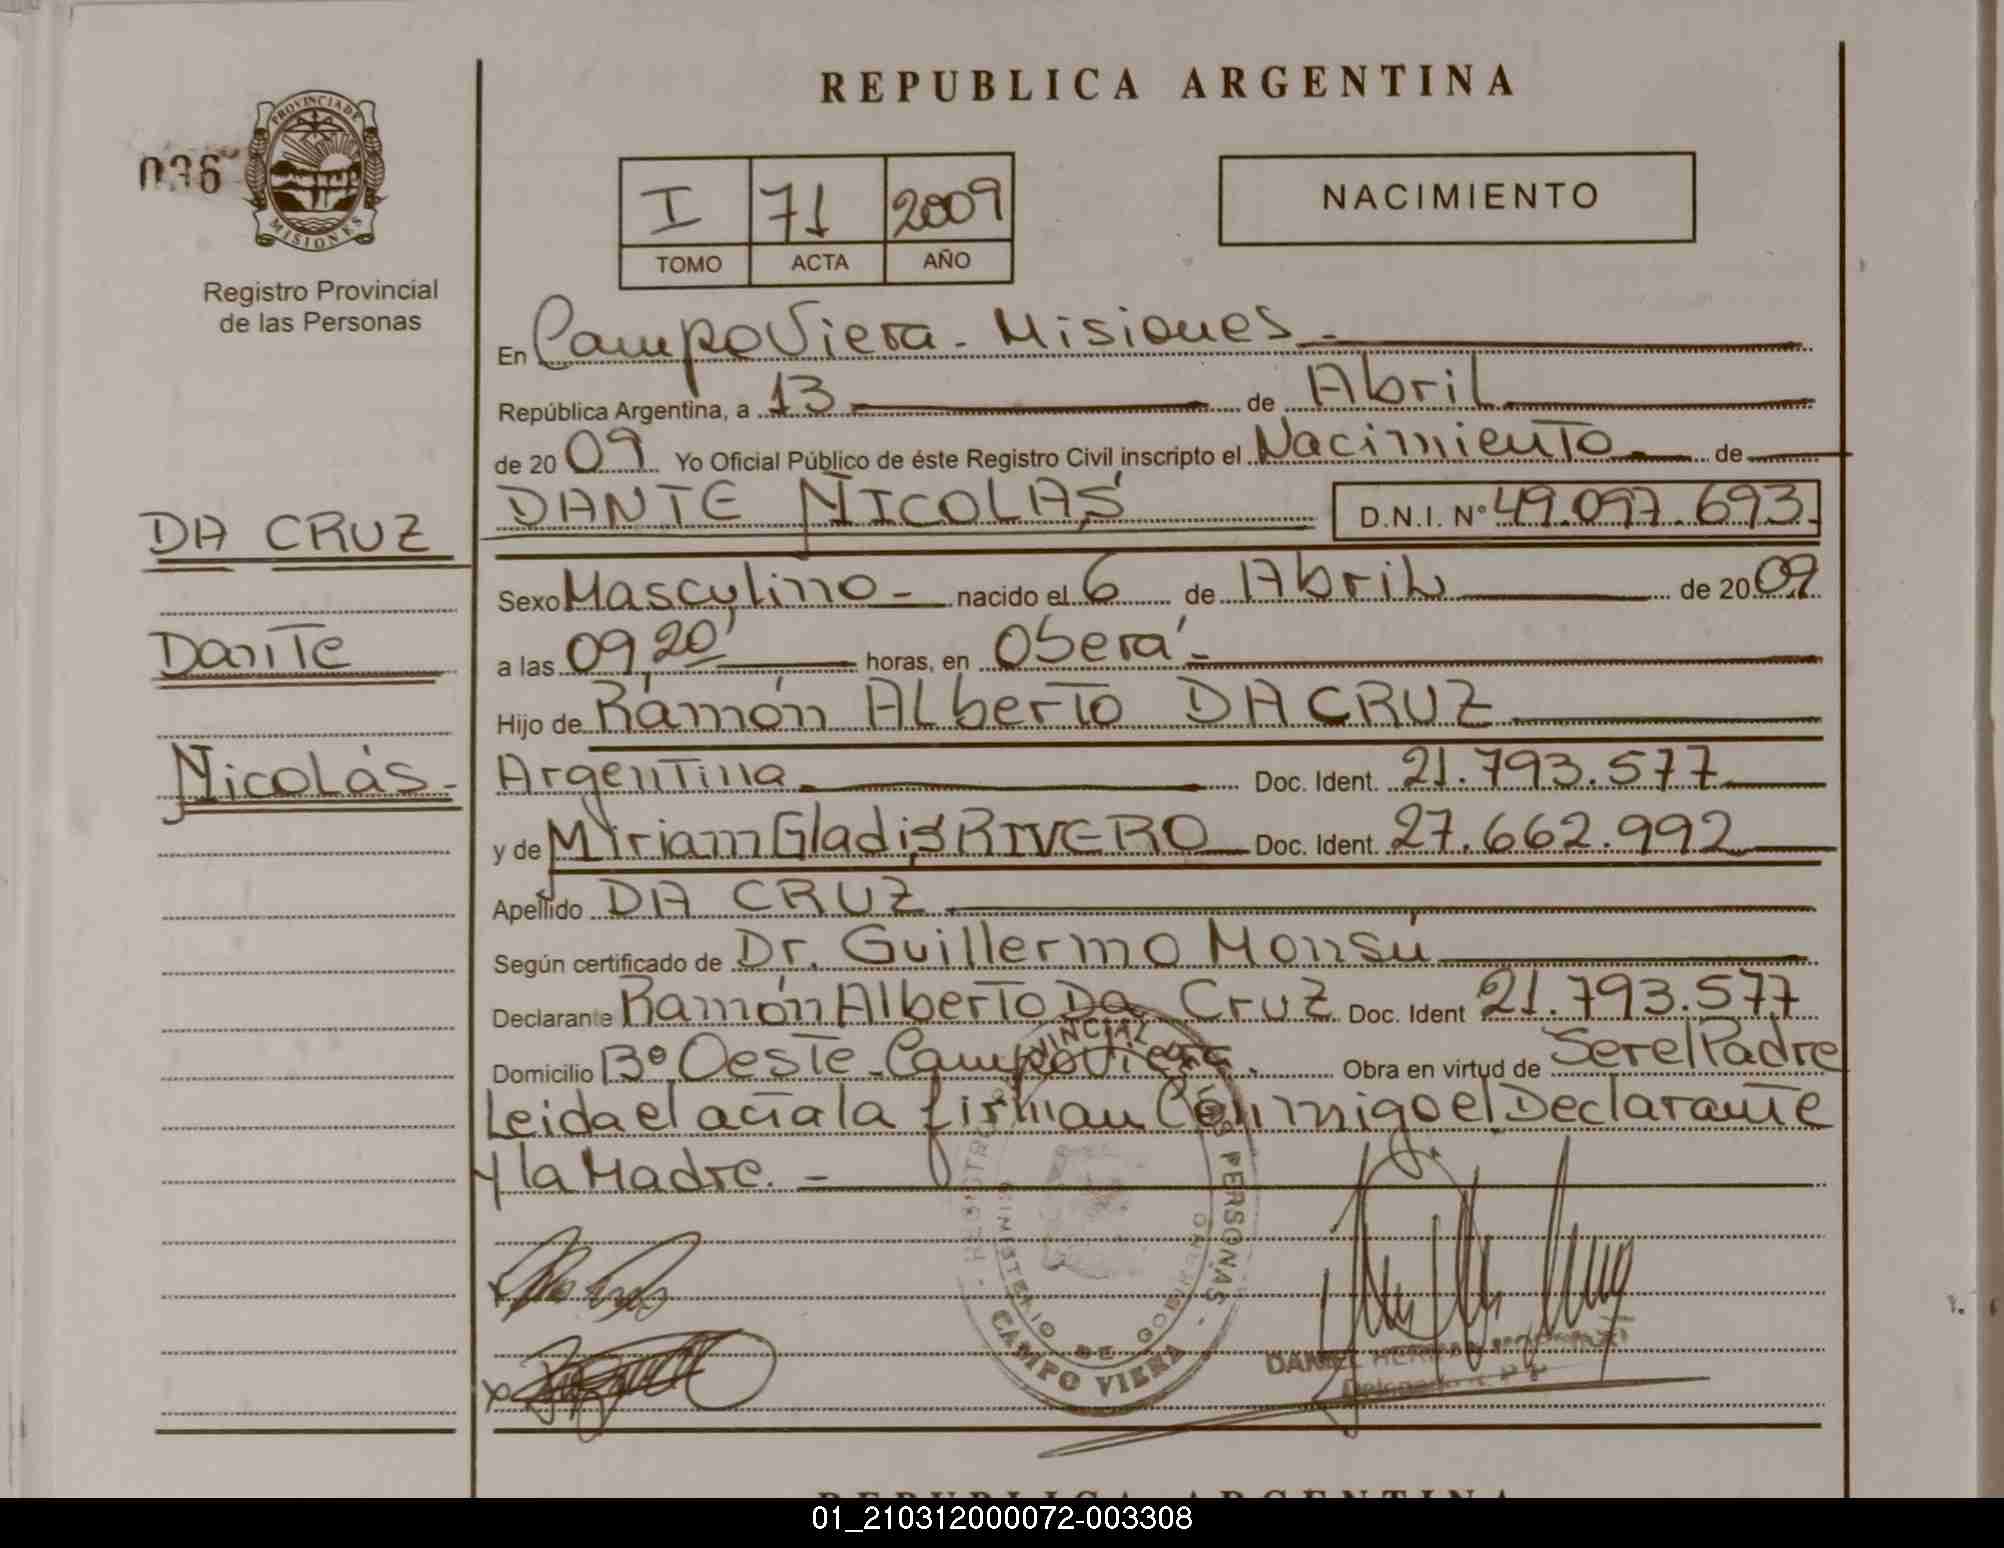 REPUBLICA ARGENTINA
036
PROVINCIA DE
MISIONES
Registro Provincial
de las Personas
I 71 2009
TOMO ACTA AÑO
NACIMIENTO
En Campo Viera - Misiones -
República Argentina, a 13 de Abril
de 2009 Yo Oficial Público de éste Registro Civil inscripto el Nacimiento de
DANTE NICOLAS D.N.I. Nº 49.097.693.
DA CRUZ
Dante
Nicolás -
Sexo Masculino - nacido el 6 de Abril de 2009
a las 09,20' horas, en Oberá -
Hijo de Ramón Alberto DA CRUZ
Argentina Doc. Ident. 21.793.577
y de Miriam Gladis RIVERO Doc. Ident. 27.662.992
Apellido DA CRUZ
Según certificado de Dr. Guillermo Monsú
Declarante Ramón Alberto Da Cruz Doc. Ident 21.793.577
Domicilio Bº Oeste - Campo Viera. Obra en virtud de Ser el Padre
Leida el acta la firman Conmigo el Declarante
y la Madre. -
PERSONAS
MINISTERIO DE GOBIERNO
CAMPO VIERA
DANIEL
REPUBLICA ARGENTINA
01_210312000072-003308